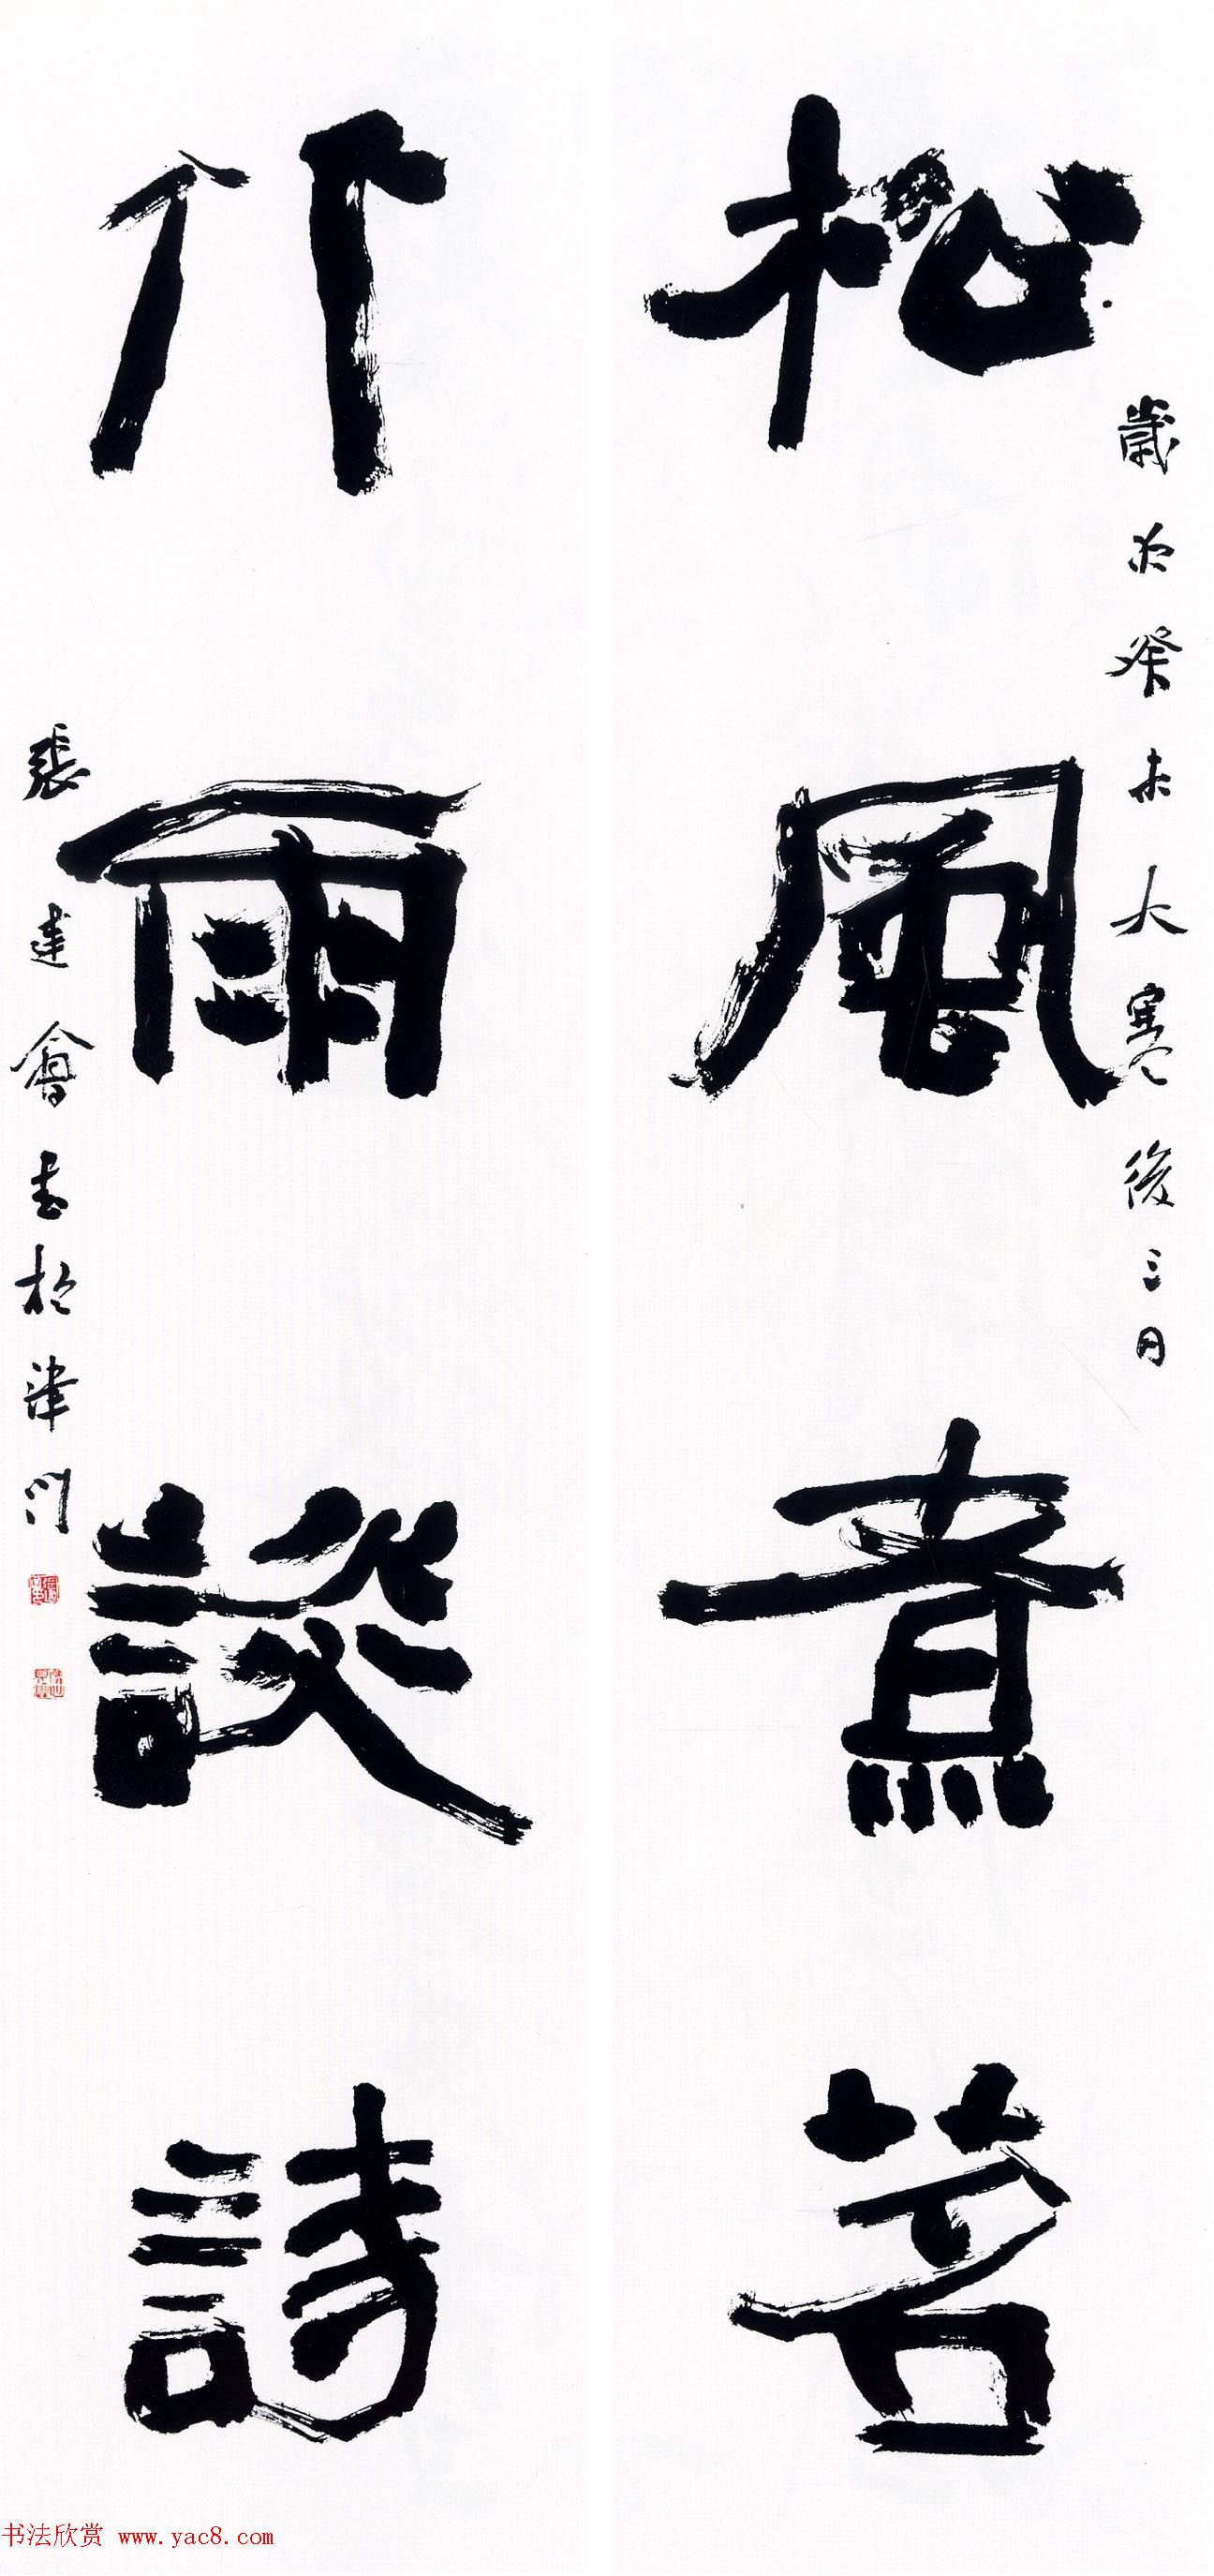 歲次癸未大寒後三日
松風煮茗
竹雨談詩
張建會書於津門
书法欣赏 www.yac8.com